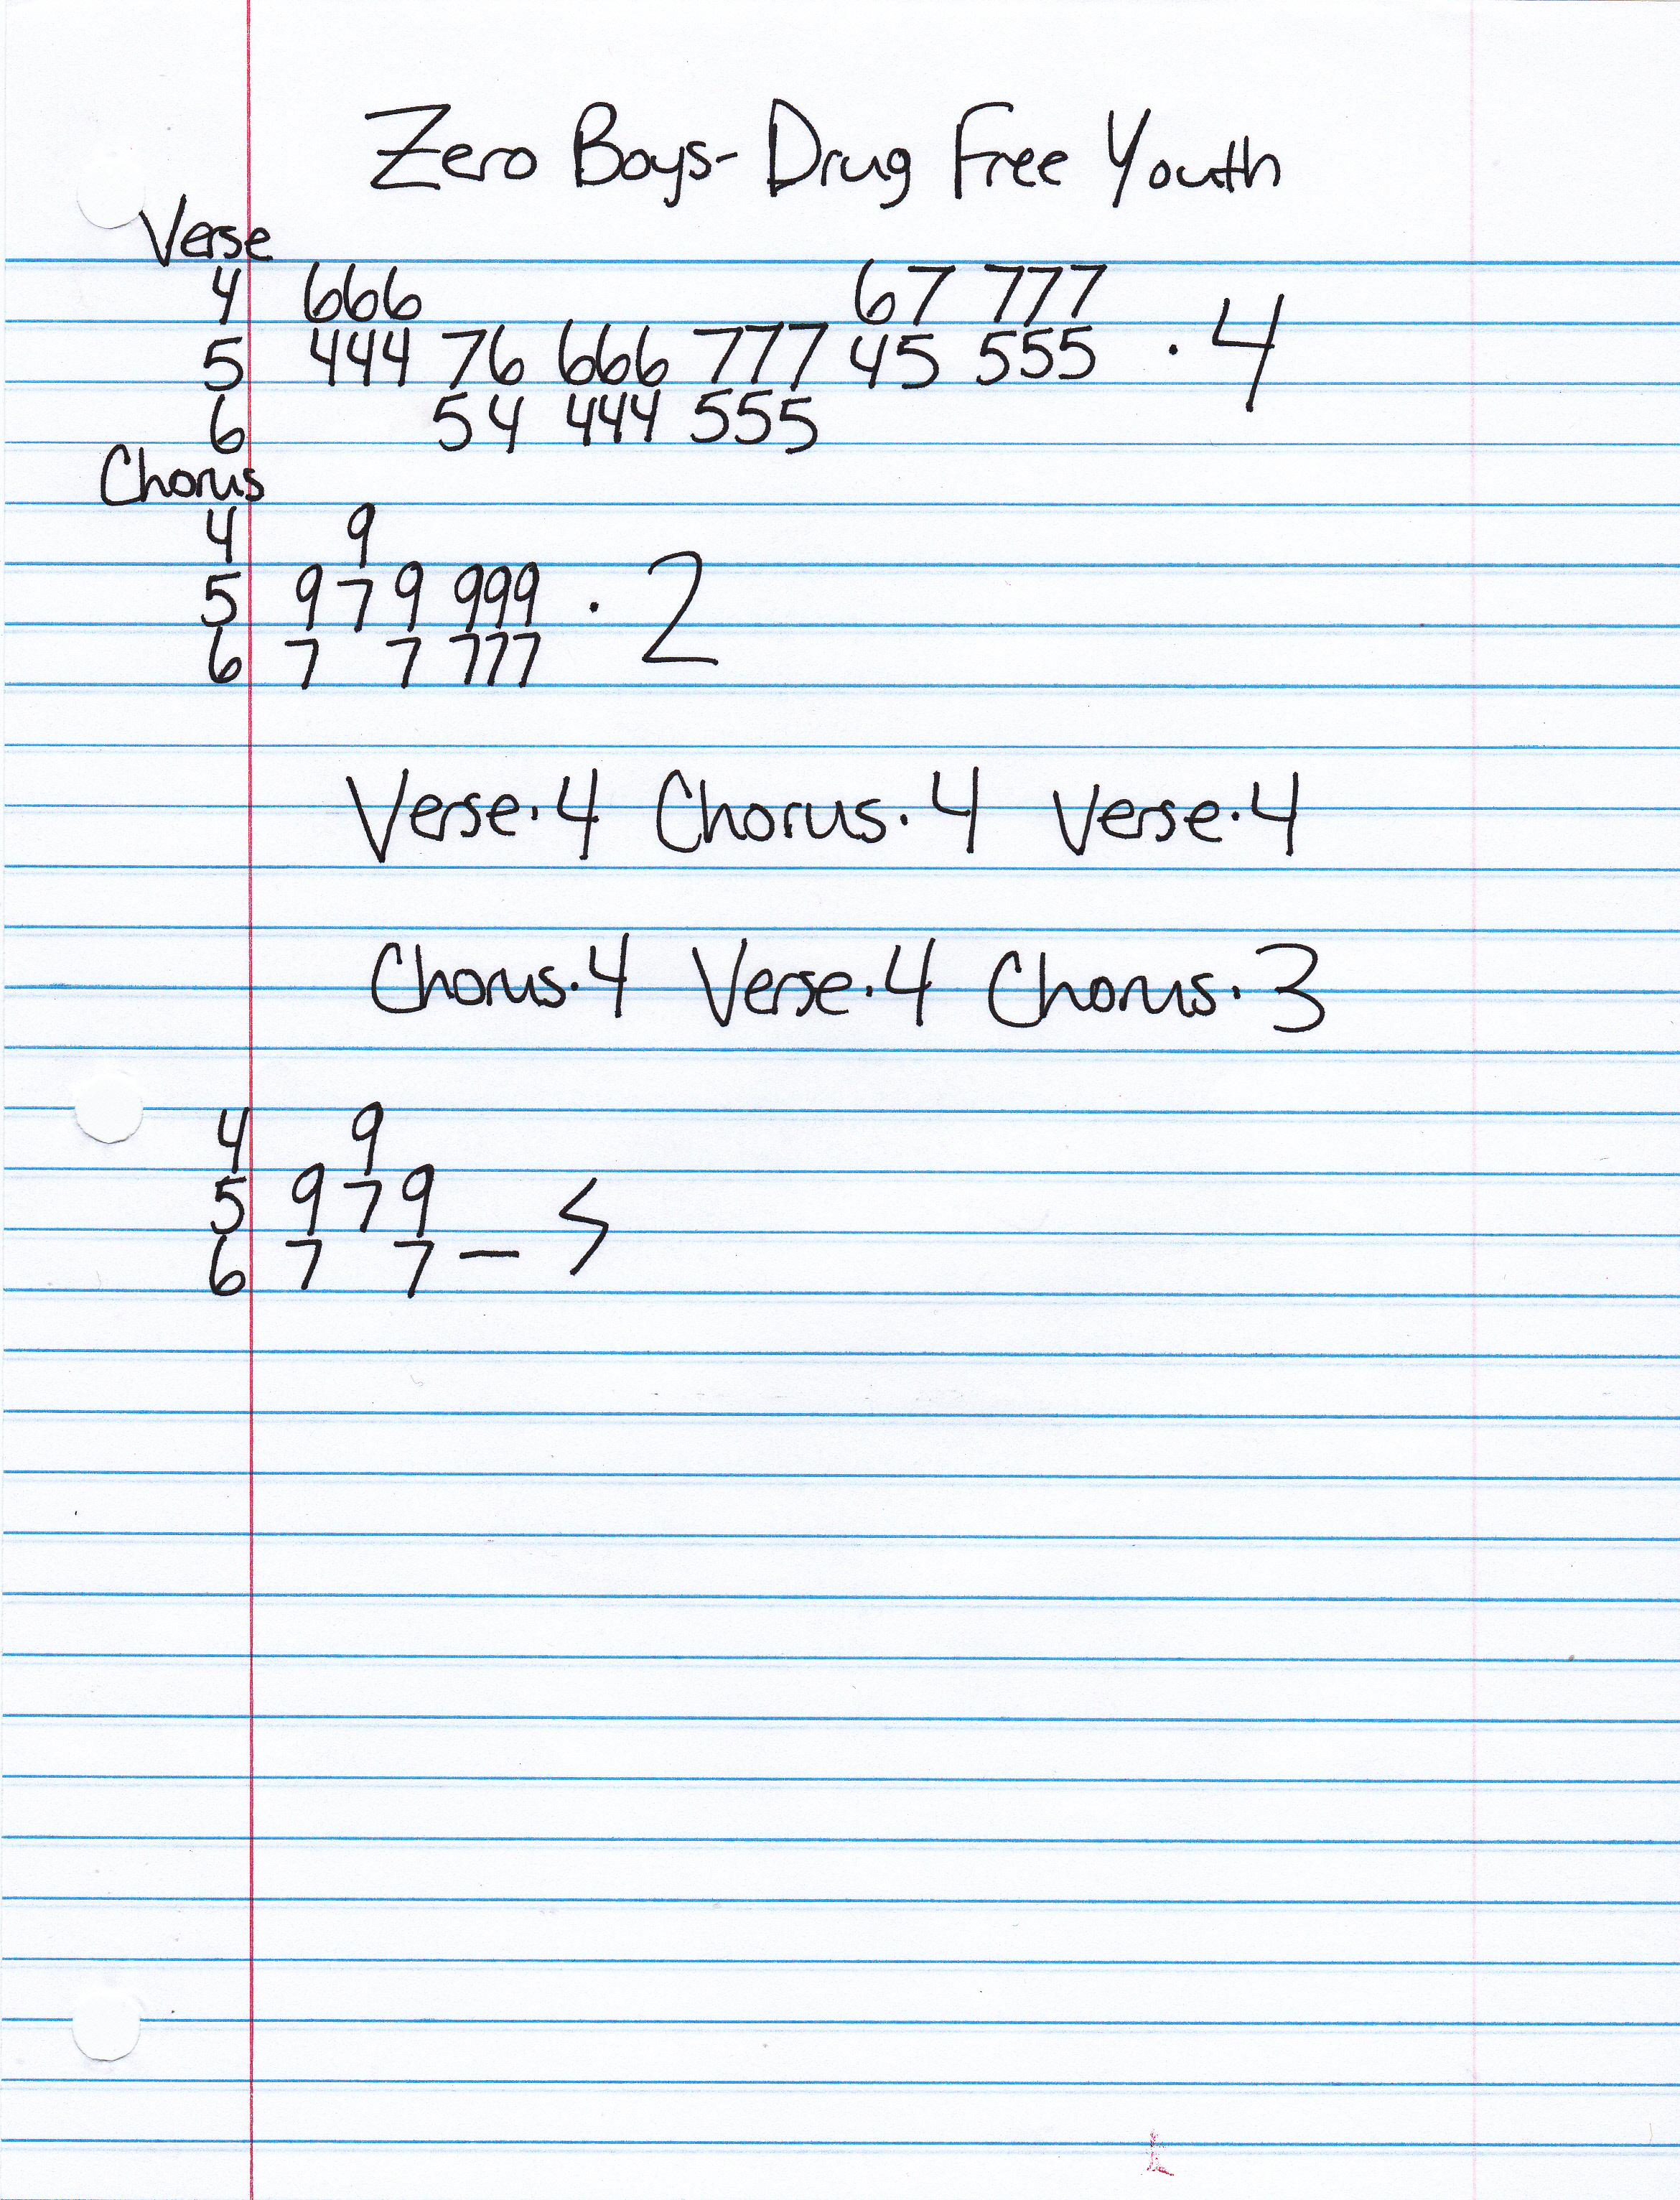 Zero Boys- Drug Free Youth
Verse
4 666 67 777
5 444 76 666 777 45 555 · 4
6 54 444 555
Chorus
4 9
5 9 7 9 999 · 2
6 7 7 777
Verse·4 Chorus·4 Verse·4
Chorus·4 Verse·4 Chorus·3
4 9
5 9 7 9
6 7 7 —